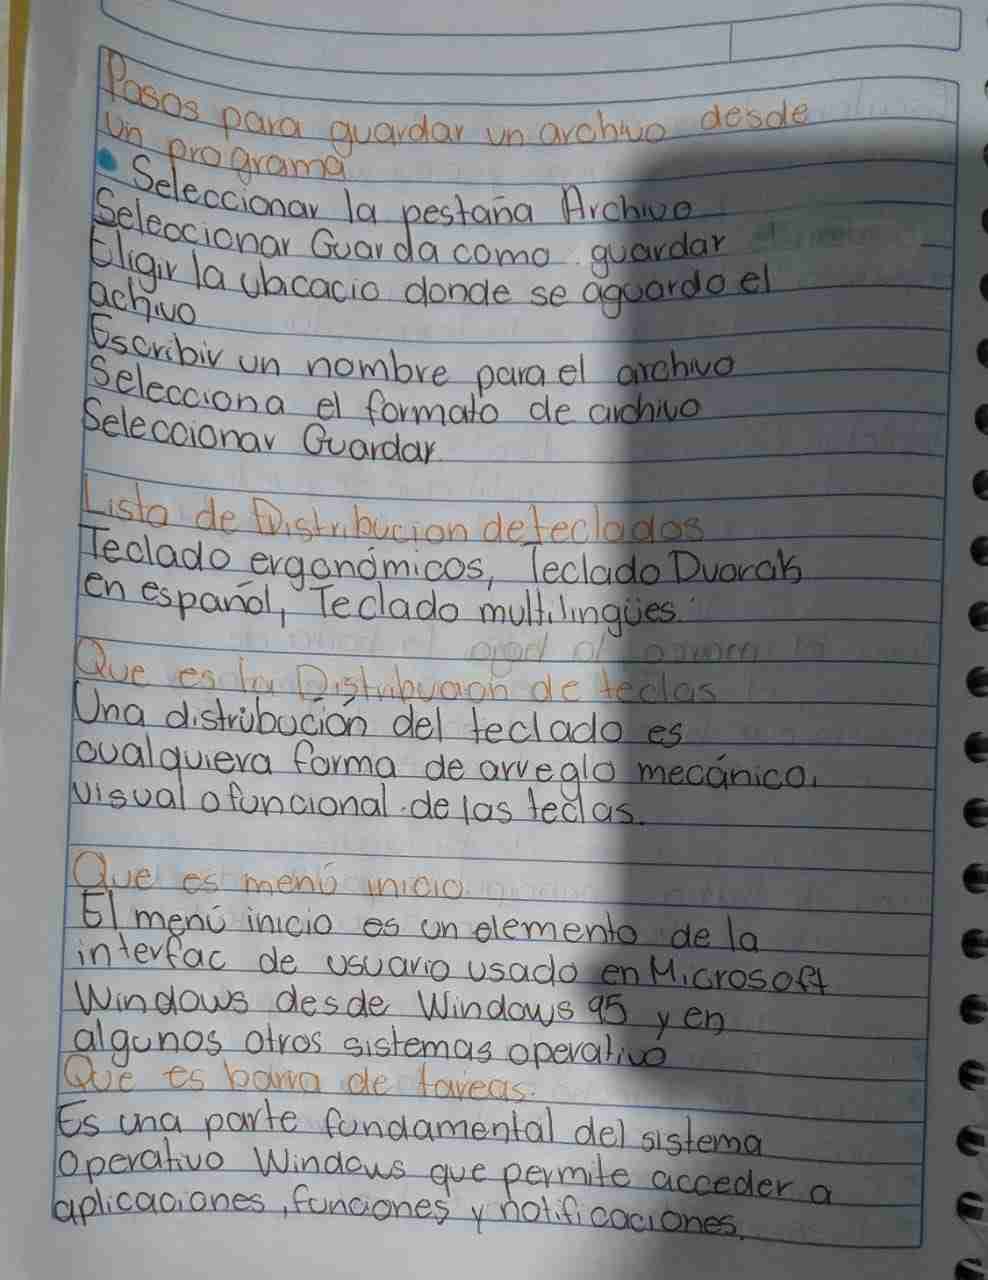 Pasos para guardar un archivo desde
un programa
• Seleccionar la pestaña Archivo
Seleccionar Guarda como guardar
Eligir la ubicacio donde se aguardo el
achivo
Escribir un nombre para el archivo
Selecciona el formato de archivo
Seleccionar Guardar
Lista de Distribucion de teclados
Teclado ergonómicos, Teclado Dvorak
en español, Teclado multilingües.
Que es la Distribucion de teclas
Una distribución del teclado es
cualquiera forma de arreglo mecánico,
visual o funcional de las teclas.
Que es menú inicio
El menú inicio es un elemento de la
interfac de usuario usado en Microsoft
Windows desde Windows 95 y en
algunos otros sistemas operativo
Que es barra de tareas.
Es una parte fundamental del sistema
Operativo Windows que permite acceder a
aplicaciones, funciones y notificaciones.